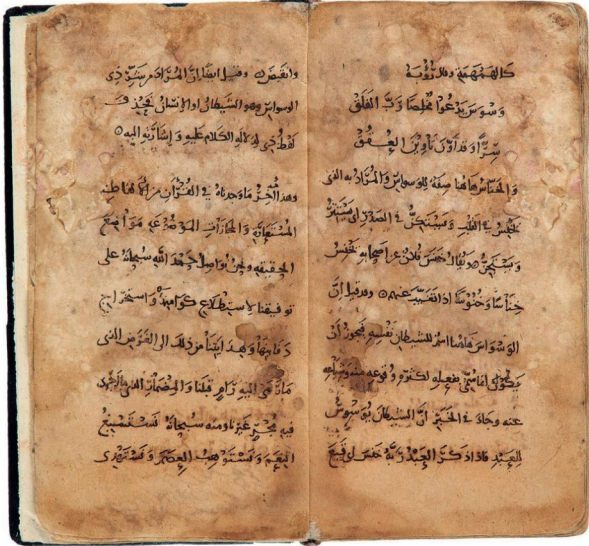 كالهمهمة وقال رؤبة
وسوس يدعوا مخلصا رب الفلق
سرا وقد أون تأوين العقق
والخناس هاهنا صفة للوسواس والمراد به الذي
يخنس في القلب ويستكن في الصدر اي يستتر
ويستجن يقال خنس فلان عن اصحابه يخنس
خناسا وخنوسا اذا تغيب عنهم وقد قيل ان
الوسواس هاهنا اسم للشيطان نفسه فيجوز أن
يكون انما سمي بفعله لكثرة وقوعه منه
عنه وجاء في الخبر ان الشيطان يوسوس
للعبد فاذا ذكر العبد ربه خنس اي قبع
وانقبض وقيل ايضا ان المراد من شر ذي
الوسواس وهو الشيطان او الانسان فحذف
لفظ ذي لدلالة الكلام عليه وإشارته اليه
وهذا آخر ما وجدناه في القرآن من الالفاظ
المستعارة والمجازات الموضوعة مواضع
الحقيقة ونحن نواصل حمد الله سبحانه على
توفيقنا لاستطلاع كوامنها واستخراج
دفائنها وهدايتنا من ذلك الى الغرض الذي
ما رمى اليه رام قبلنا والمضمار الذي لم
فيه مجر غيرنا ومنه سبحانه نستسبغ
النعم ونستوهب العصم ونستهدي